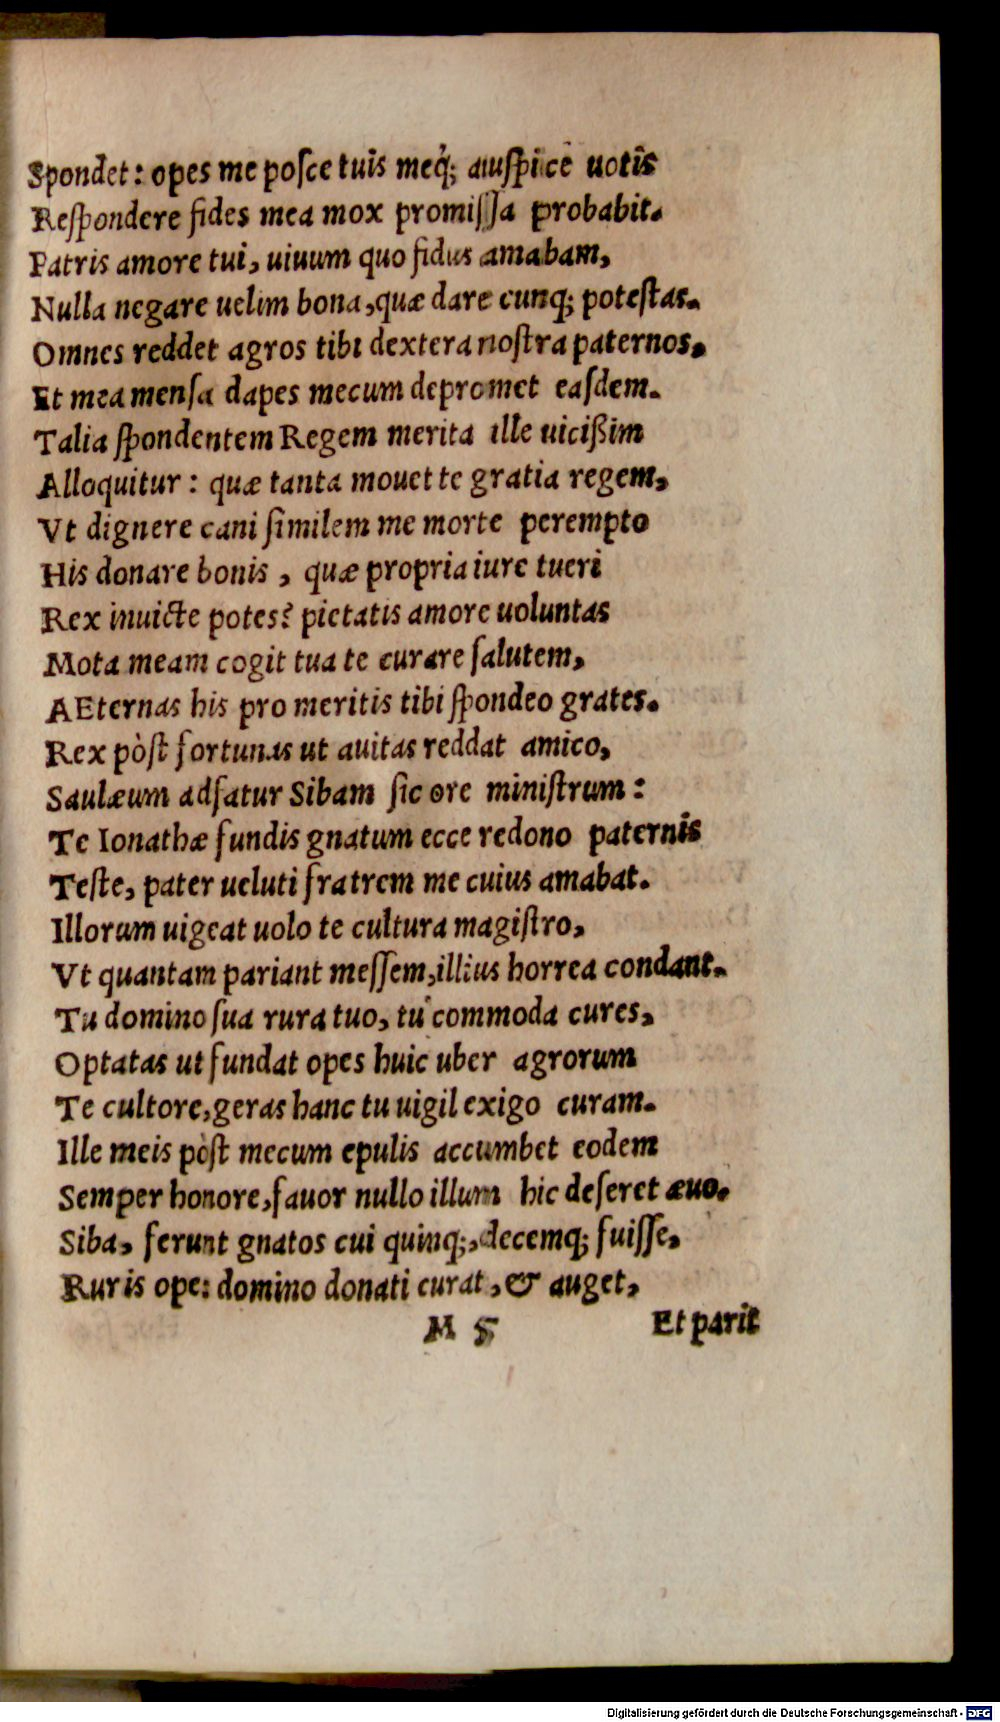 Spondet: opes me posce tuis meq́; auspice uotis
Respondere fides mea mox promissa probabit.
Patris amore tui, uiuum quo fidus amabam,
Nulla negare uelim bona, quæ dare cunq; potestas.
Omnes reddet agros tibi dextera nostra paternos,
Et mea mensa dapes mecum depromet easdem.
Talia spondentem Regem merita ille uicißim
Alloquitur: quæ tanta mouet te gratia regem,
Vt dignere cani similem me morte perempto
His donare bonis, quæ propria iure tueri
Rex inuicte potes? pietatis amore uoluntas
Mota meam cogit tua te curare salutem,
AEternas his pro meritis tibi spondeo grates.
Rex pòst fortunas ut auitas reddat amico,
Saulæum adfatur Sibam sic ore ministrum:
Te Ionathæ fundis gnatum ecce redono paternis
Teste, pater ueluti fratrem me cuius amabat.
Illorum uigeat uolo te cultura magistro,
Vt quantam pariant messem, illius horrea condant.
Tu domino sua rura tuo, tu commoda cures,
Optatas ut fundat opes huic uber agrorum
Te cultore, geras hanc tu uigil exigo curam.
Ille meis pòst mecum epulis accumbet eodem
Semper honore, fauor nullo illum hic deseret æuo.
Siba, ferunt gnatos cui quinq;, decemq; fuisse,
Ruris ope: domino donati curat, & auget,
M 5 Et parit
Digitalisierung gefördert durch die Deutsche Forschungsgemeinschaft - DFG